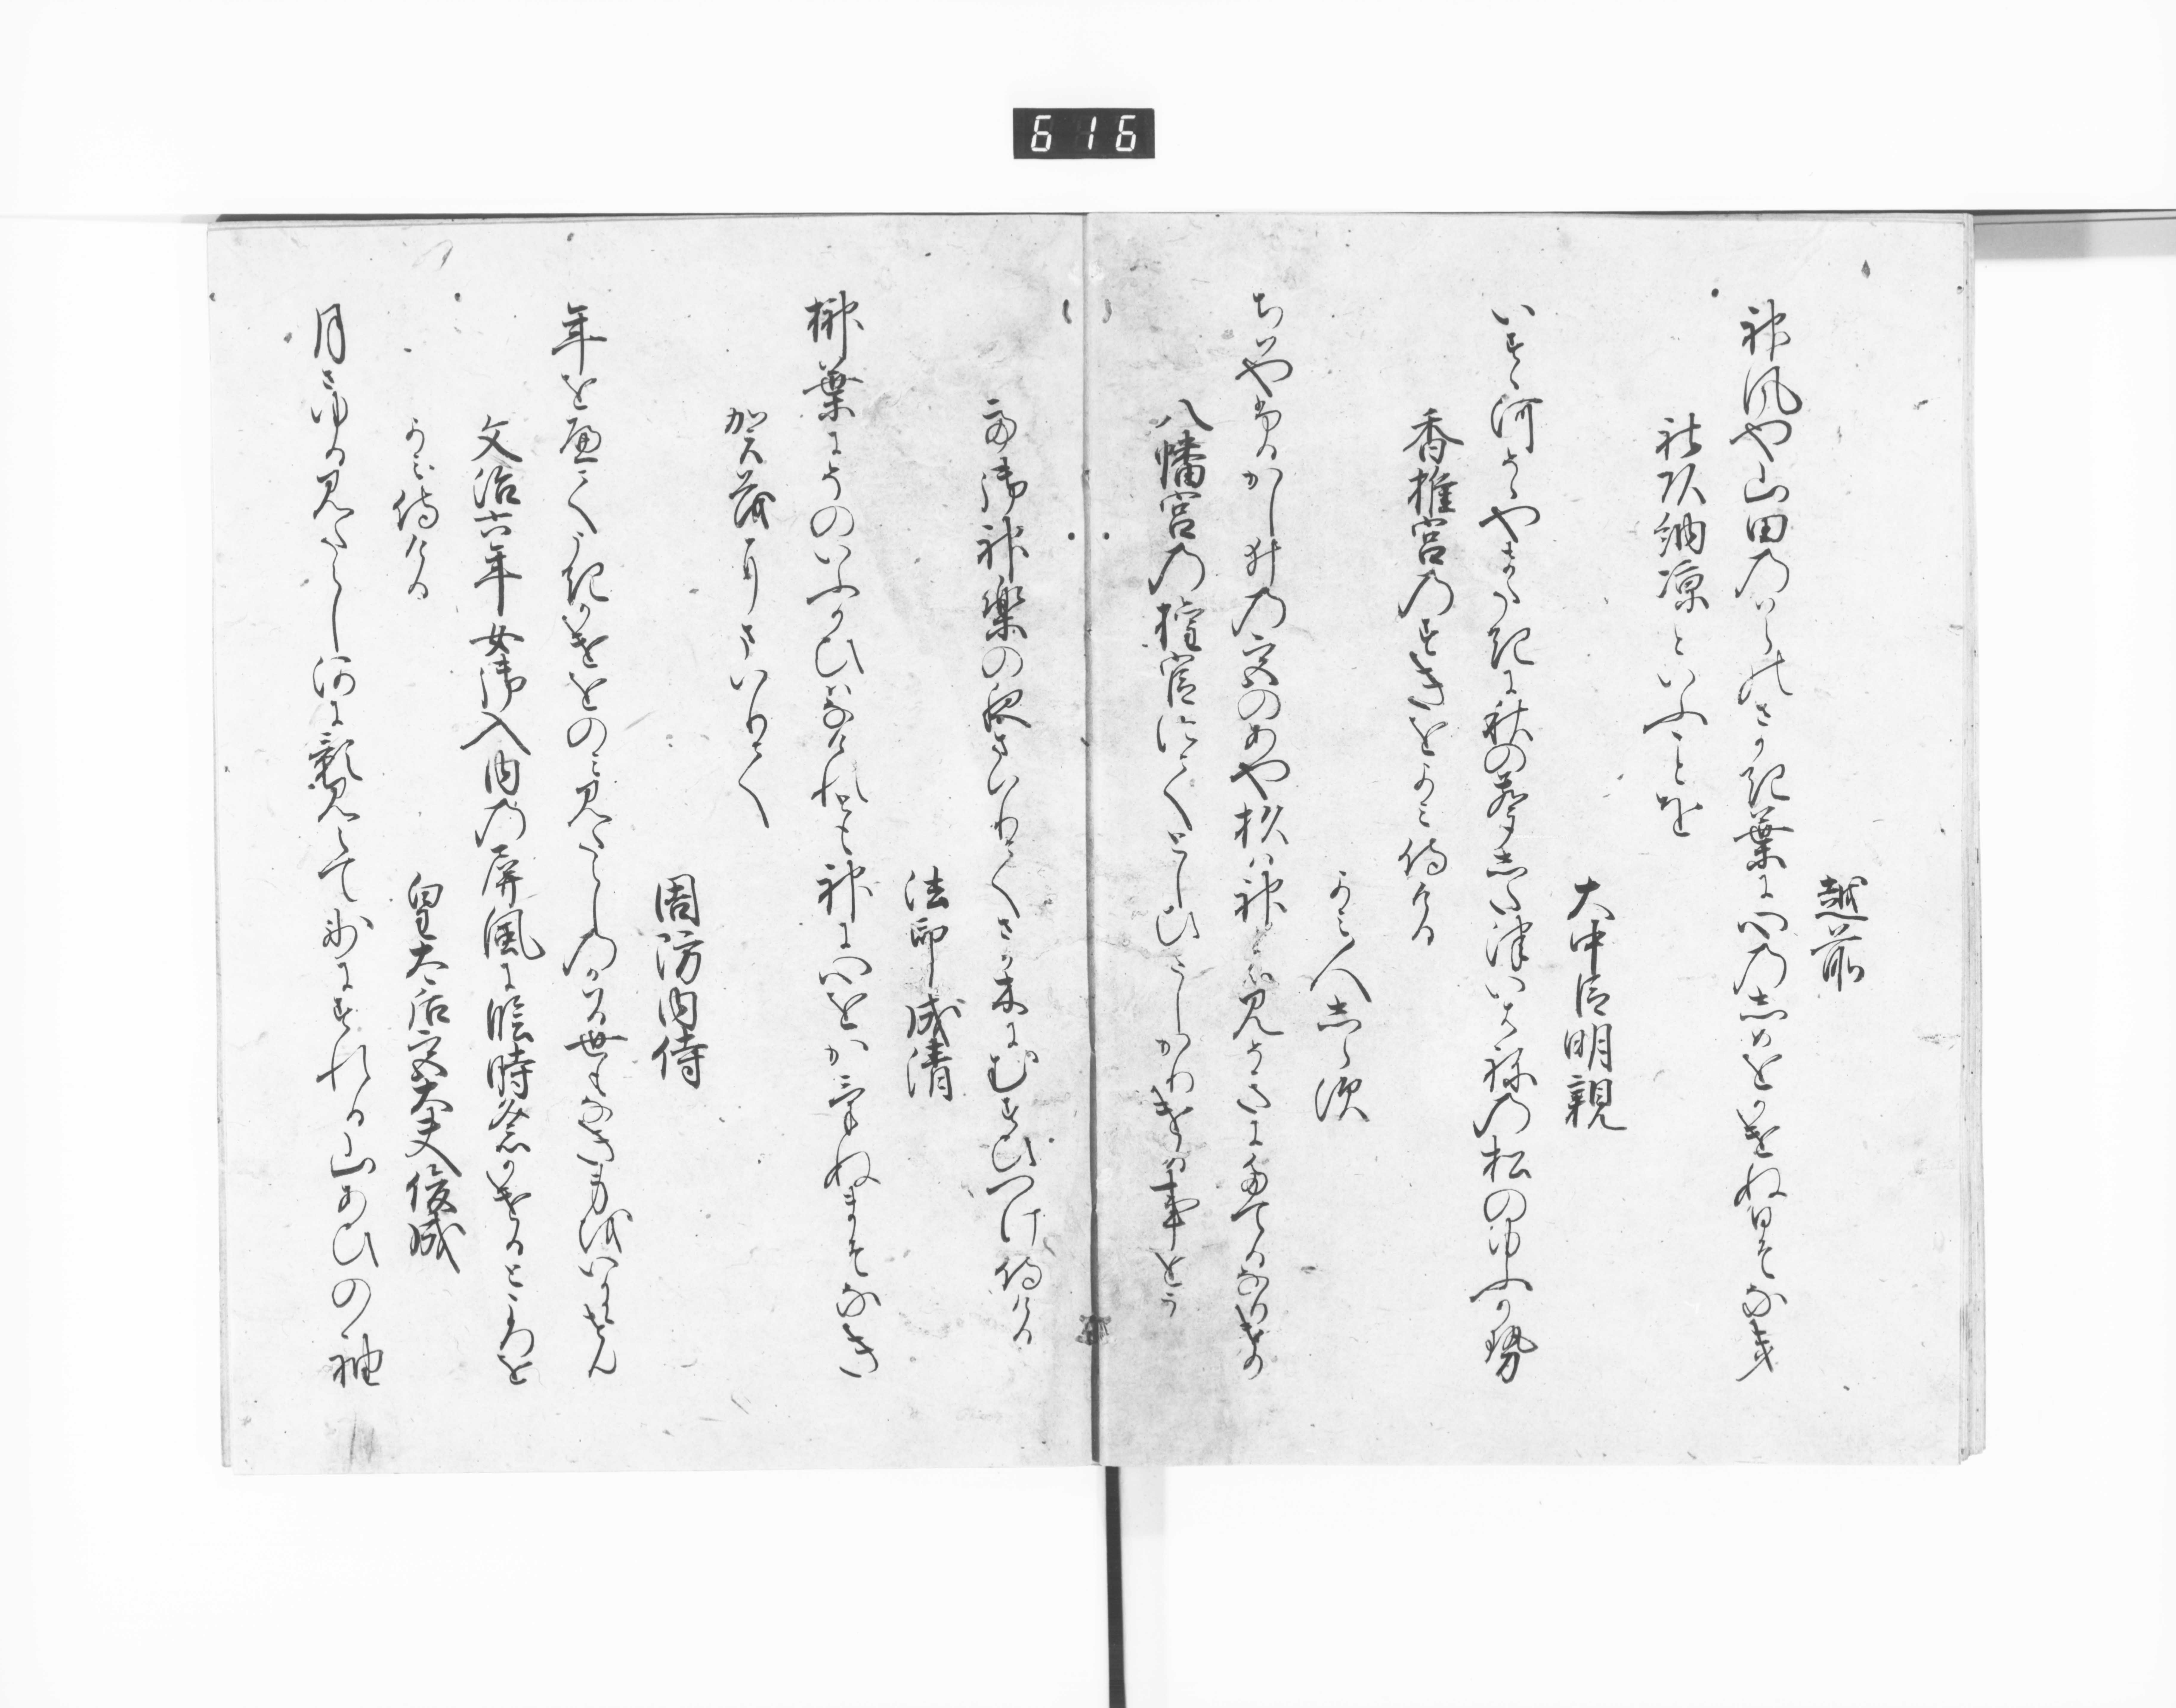 616
越前
神風や山田のはらのさか記葉に心の志めをかけぬ日そなき
社頭納凉といふことを
大中臣明親
いすゝ河そらやまたき尓秋の聲したついはねの松のゆふ風
香椎宮のすきをよみ侍ける
よみ人志らす
ちはや布るかしゐの宮のあや杦は神のみそきにたてるなりけり
八幡宮の權官にてとしひさしかりける事をう
み御神樂の夜まいりてさか木にむすひつけ侍ける
法印成清
榊葉にそのいふかひはなけれとも神に心をかけぬまそなき
賀茂にまいりて
周防内侍
年をへてうきかけをのみみたらしのかはる世もなき身をいかにせん
文治六年女御入内の屏風に臨時祭かけるところを
よみ侍ける
皇太后宮大夫俊成
月さゆる見たらし河に影見えて氷にすれる山あひの袖